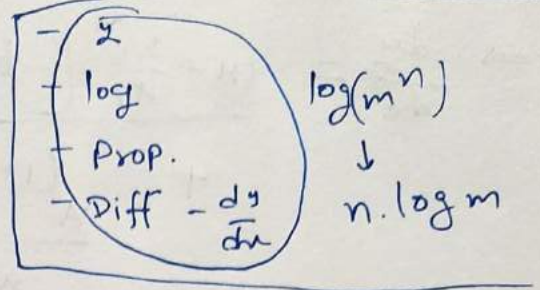 - y
- log
- Prop.
- Diff - dy/dx
log(m^n)
↓
n. log m